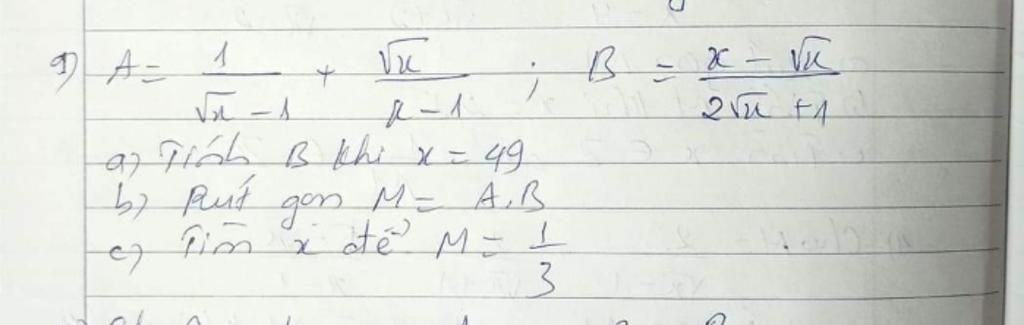 9) A = 1/(√x - 1) + √x/(x - 1) ; B = (x - √x)/(2√x + 1)
a) Tính B khi x = 49
b) Rút gọn M = A.B
c) Tìm x để M = 1/3